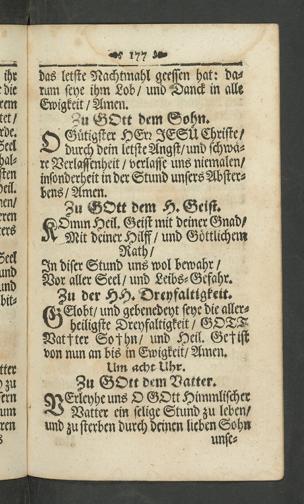 177
das letste Nachtmahl geessen hat: da-
rum seye ihm Lob/ und Danck in alle
Ewigkeit/ Amen.
Zu GOtt dem Sohn.
O Gütigster HErr JESU Christe/
durch dein letste Angst/ und schwä-
re Verlassenheit/ verlasse uns niemalen/
insonderheit in der Stund unsers Abster-
bens/ Amen.
Zu GOtt dem H. Geist.
KOmm Heil. Geist mit deiner Gnad/
Mit deiner Hilff/ und Göttlichem
Rath/
In diser Stund uns wol bewahr/
Vor aller Seel/ und Leibs-Gefahr.
Zu der HH. Dreyfaltigkeit.
GElobt/ und gebenedeyt seye die aller-
heiligste Dreyfaltigkeit/ GOTT
Vat†ter So†hn/ und Heil. Ge†ist
von nun an bis in Ewigkeit/ Amen.
Um acht Uhr.
Zu GOtt dem Vatter.
VErleyhe uns O GOtt Himmlischer
Vatter ein selige Stund zu leben/
und zu sterben durch deinen lieben Sohn
unse-